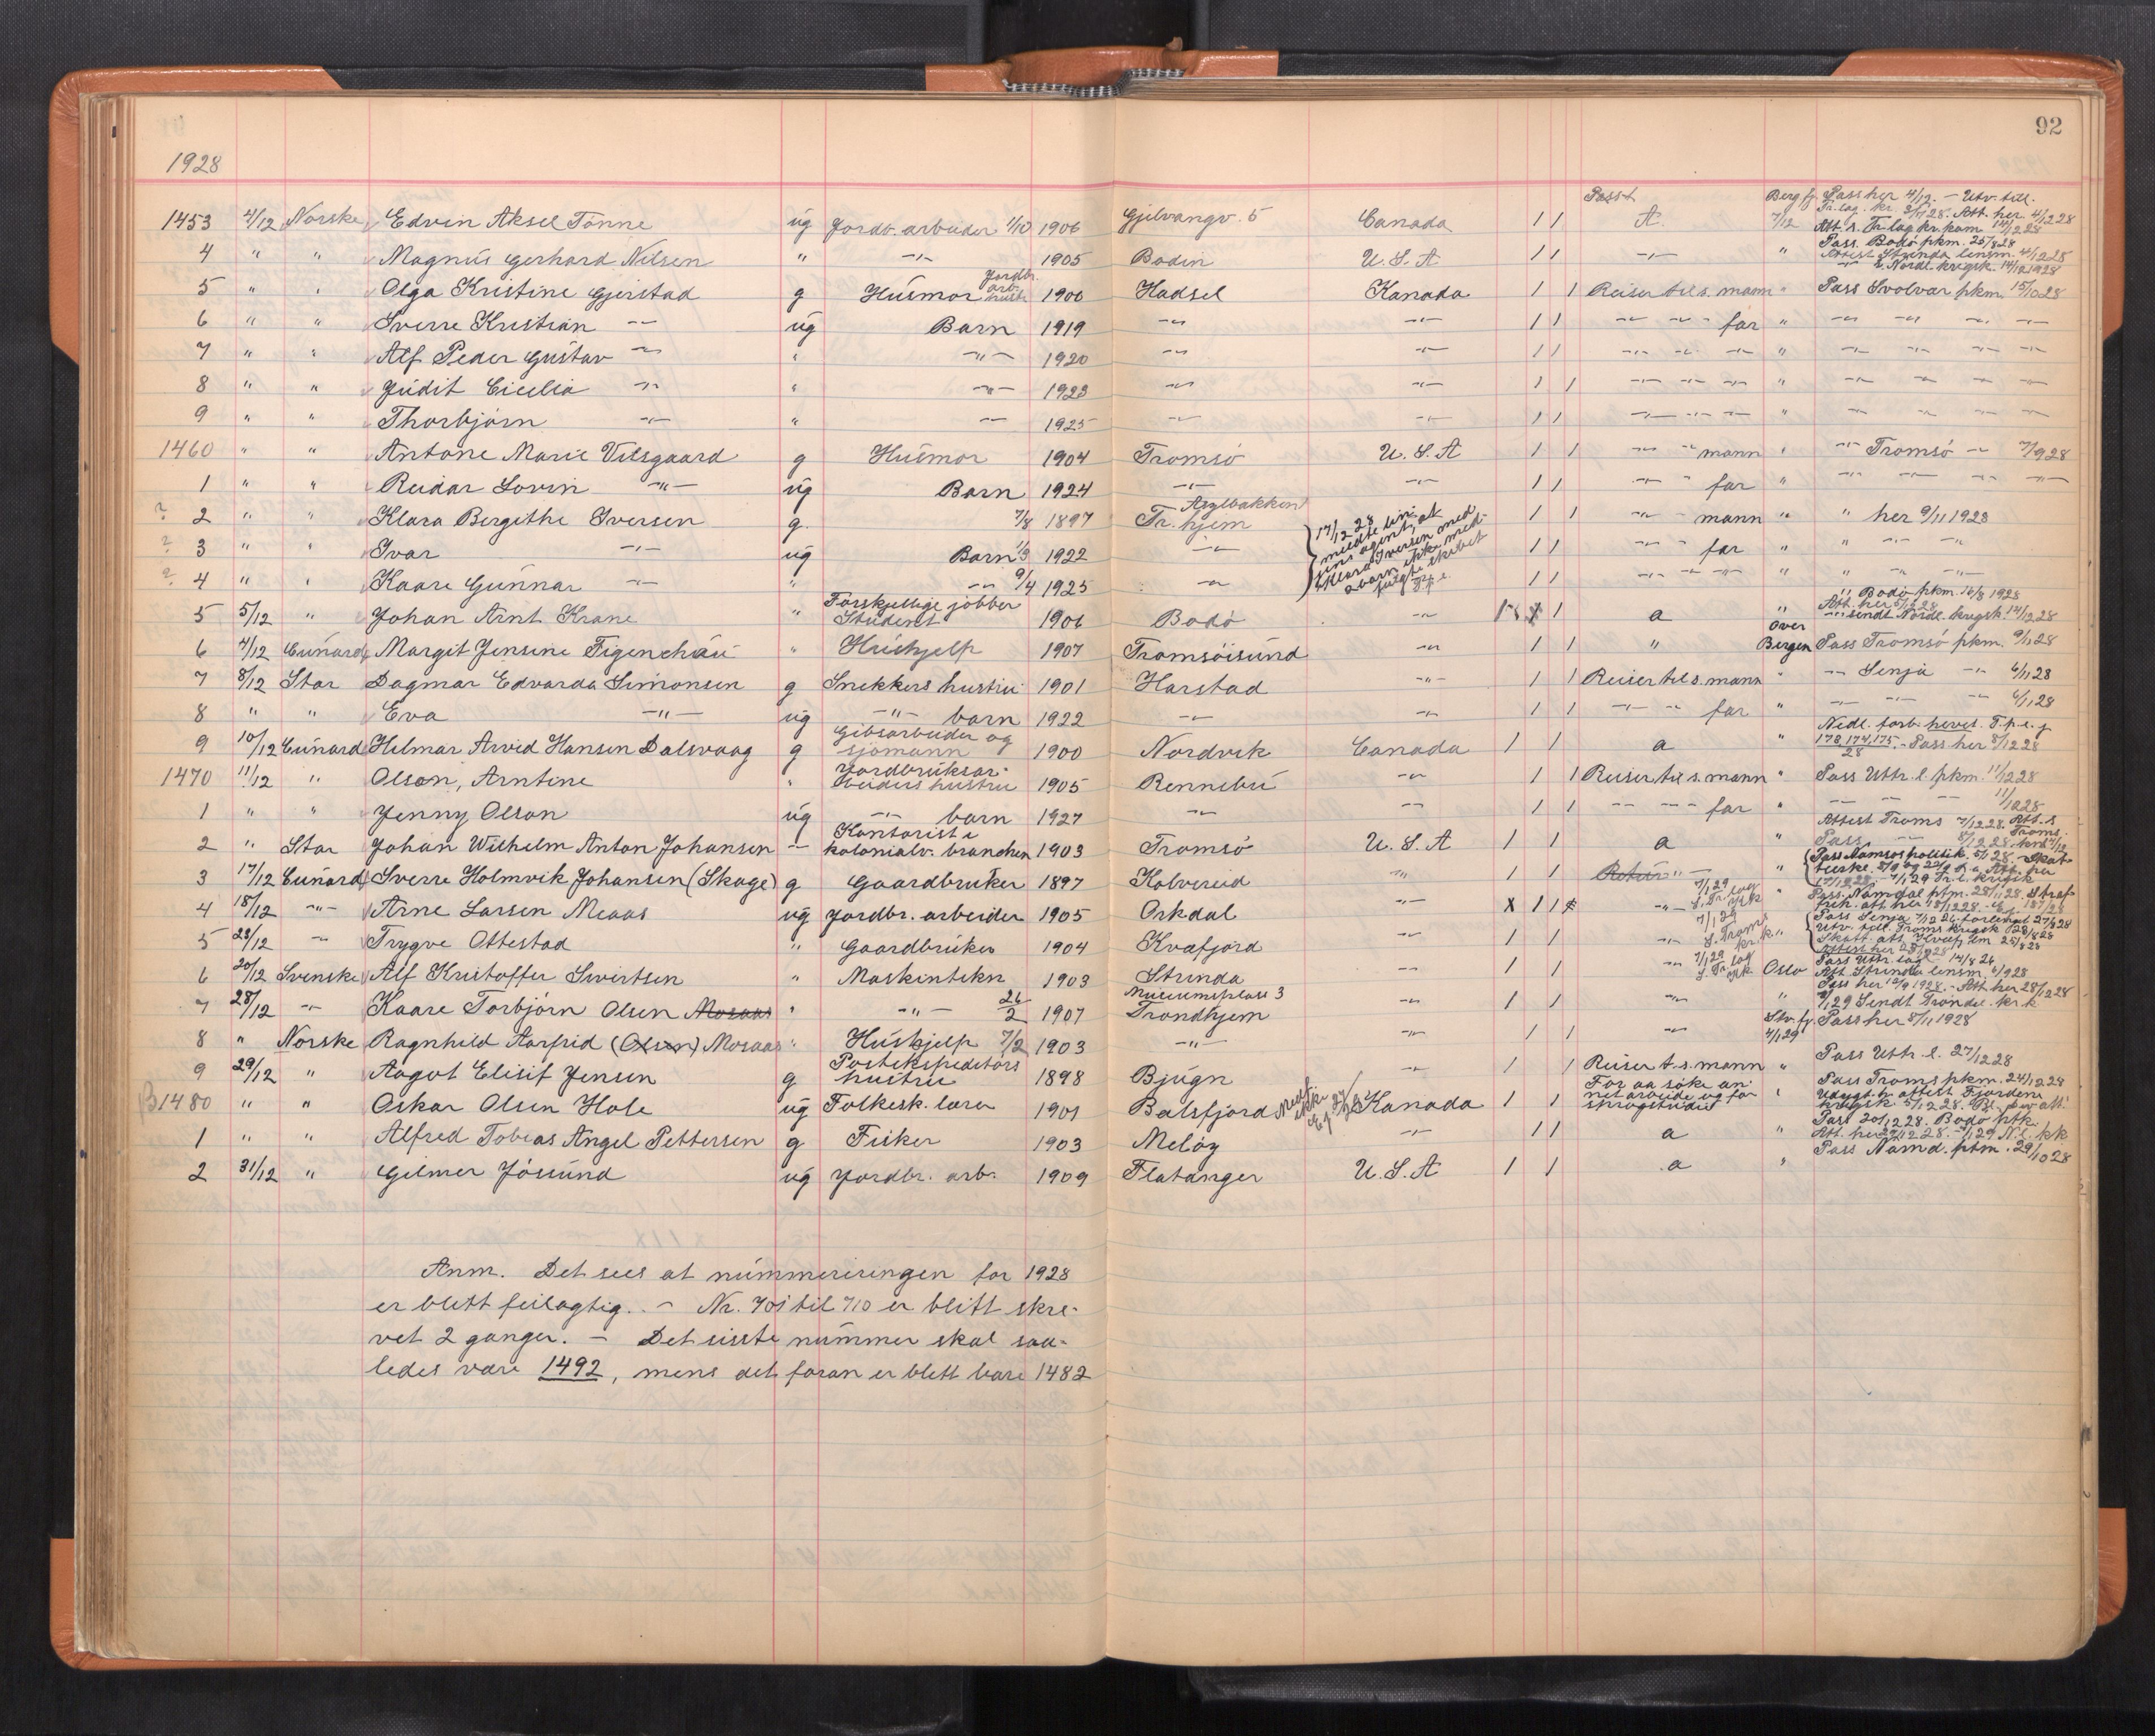 92
1928
Passt
1453 4/12 Norske Edvin Aksel Tönne ug Jordb. arbeider 1/10 1906 Gjelvangv. 5 Canada 1 1 A. Berg fj. 7/12 Pass her 4/12. - Utv. till. Tr. lag. kr. 2/11 28. Att. her. 4/12 28 Att. s. Tr. lag kr. kom 14/12 28
4 " " Magnus Gerhard Nilsen " -"- 1905 Bodin U.S.A 1 1 -"- " Pass. Bodö pkm. 25/8 28 Attest Strinda lensm. 4/12 28 -"- s. Nordl. krigsk. 14/12 1928
5 " " Olga Kristine Gjerstad g Husmor Jordbr. arb. hustr. 1900 Hadsel Kanada 1 1 Reiser til s. mann " Pass Svolvær pkm. 15/10 28
6 " " Sverre Kristian -"- ug Barn 1919 -"- -"- 1 1 -"- -"- " far " -"- -"- -"- -"-
7 " " Alf Peder Gustav -"- " -"- 1920 -"- -"- 1 1 -"- -"- -"- " -"- -"- -"- -"-
8 " " Judit Cicilia -"- " -"- 1923 -"- -"- 1 1 -"- -"- -"- " -"- -"- -"- -"-
9 " " Thorbjörn -"- " -"- 1925 -"- -"- 1 1 -"- -"- -"- " -"- -"- -"- -"-
1460 " " Antone Marie Vilsgaard g Husmor 1904 Tromsö U.S.A 1 1 -"- -"- mann " -"- Tromsö -"- 7/9 28
1 " " Reidar Lovin -"- ug Barn 1924 -"- -"- 1 1 -"- " far " -"- -"- -"- -"-
? 2 " " Klara Bergithe Iversen g. 7/8 1897 Tr. hjem 1 1 -"- - mann " " her 9/11 1928
17/12 28 meldte lin- jens agent, at Klara Iversen med 2 barn ikke med- fulgte skibet T.p.e.
? 3 " " Ivar -"- ug Barn 1/3 1922 -"- 1 1 -"- " far " " -"- -"-
? 4 " " Kaare Gunnar -"- " -"- 9/4 1925 -"- 1 1 -"- -"- -"- " " -"- -"-
5 5/12 " Johan Arnt Krane " Forskjellige jobber Student 1906 Bodö -"- 1 a " " Bodö pkm. 16/8 1928 Att. her 5/12 28 -"- sendt Nordl. krigsk. 14/12 28
6 7/12 Cunard Margit Jensine Figenchau " Hushjelp 1907 Tromsöisund -"- 1 1 " over Bergen Pass Tromsö pkm. 9/11 28
7 8/12 Star Dagmar Edvarda Simonsen g Snekkers hustru 1901 Harstad -"- 1 1 Reiser til s. mann " -"- Senja -"- 6/11 28
8 " " Eva -"- ug -"- barn 1922 -"- -"- 1 1 -"- -"- far " -"- -"- -"- 6/11 28
9 10/12 Cunard Hilmar Arvid Hansen Dalsvaag g Gibsarbeider og sjömann 1900 Nordvik Canada 1 1 a " Nedl. forb. hevet. T.p.e. j 173, 174, 175/28 - Pass her 8/12 28
1470 11/12 " Olson, Arntine " Jordbruksar- beiders hustru 1905 Rennebu -"- 1 1 Reiser til s. mann " Pass Uttr. l. pkm. 11/12 28
1 " " Jenny Olson ug -"- barn 1927 -"- -"- 1 1 -"- -"- - far " -"- -"- -"- 11/12 28
2 " Star Johan Wilhelm Anton Johansen - Kontorist i kolonialv. branchen 1903 Tromsö U.S.A 1 1 a " Attest Troms 7/12 28. Att. s. Troms. Pass -"- 8/12 28
3 17/12 Cunard Sverre Holmvik Johansen (Skage) g Gaardbruker 1897 Kolvereid -"- 1 1 Retur " - " Pass Namsos politik. 5/1 28. - Skat- 17/12 28. - 7/1 29 Tr. l. krigsk
4 18/12 -"- Arne Larsen Meaas ug Jordbr. arbeider 1905 Orkdal -"- x 1 1 x -"- 7/1 29 s. Tr. lag krsk " Pass. Namdal pkm. 28/11 28 Straf- frih. att. her 18/12 28.
5 28/12 -"- Trygve Ottestad " Gaardbruker 1904 Kvæfjord -"- 1 1 -"- 7/1 29 s. Troms kr. k. " Pass Senja 7/12 26 forlenget 27/8 28 Utv. till. Troms krigsk 28/8 28 Skatt. att. Kvæfj. lm 25/8 28 Attest her 28/12 28
6 20/12 Svenske Alf Kristoffer Sivertsen " Maskintekn 1903 Strinda -"- 1 1 -"- 7/1 29 s. Tr. lag krk Oslo Pass Uttr. lag 14/8 26 Att. Strinda lensm. 4/1 928
7 28/12 -"- Kaare Torbjörn Olsen Mosaas " -"- 26/2 1907 Museumsplass 3 Trondhjem -"- 1 1 -"- " Pass her 10/9 1928. - Att her 28/12 28 7/1 29 Sendt Tröndel. kr. k
8 " Norske Ragnhild Aarfrid (Olsen) Mosaas " Hushjelp 7/2 1903 -"- -"- 1 1 -"- Stv. fj. 4/1 29 Pass her 8/11 1928
9 29/12 " Aagot Elisif Jensen g Postekspeditörs hustru 1898 Bjugn -"- 1 1 Reiser t. s. mann " Pass Uttr. l. 27/12 28
B1480 " " Oskar Olsen Hole ug Folkesk. lærer 1901 Balsfjord Kanada 1 1 For aa söke an- net arbeide og for sprogstudie " Pass Troms pkm. 24/12 28 Udygt. tv. attest Fjordenn krigsk. 5/12 28.
1 " " Alfred Tobias Angel Pettersen g Fisker 1903 Melöy -"- 1 1 a " Pass 20/12 28. Bodö ptk. Att. her 29/12 28. - 7/1 29 N.l. kk
2 31/12 " Gilmer Jösund ug Jordbr. arb. 1909 Flatanger U.S.A 1 1 a " Pass Namd. pkm. 29/10 28
Anm. Det sees at nummereringen for 1928
er blitt feilagtig. - Nr. 701 til 710 er blitt skre-
vet 2 ganger. - Det siste nummer skal saa-
ledes være 1492, mens det foran er blitt bare 1482